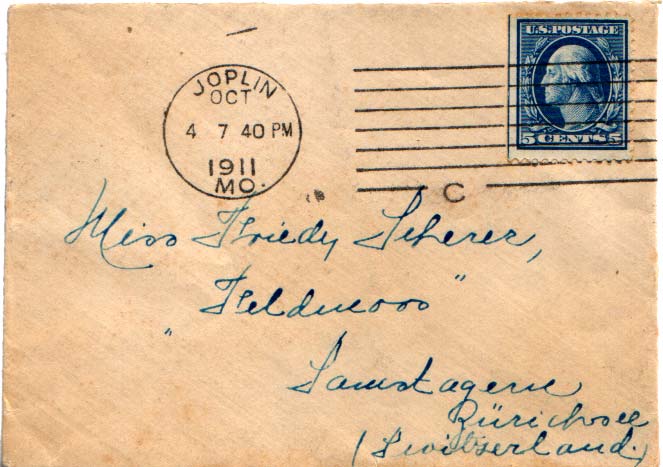 JOPLIN
OCT
4 7 40 PM
1911
MO.
C
U.S. POSTAGE
5 CENTS 5
Miss Friedy Scherer,
"Feldmoos"
Samstagern
Zürichsee
(Switzerland.)